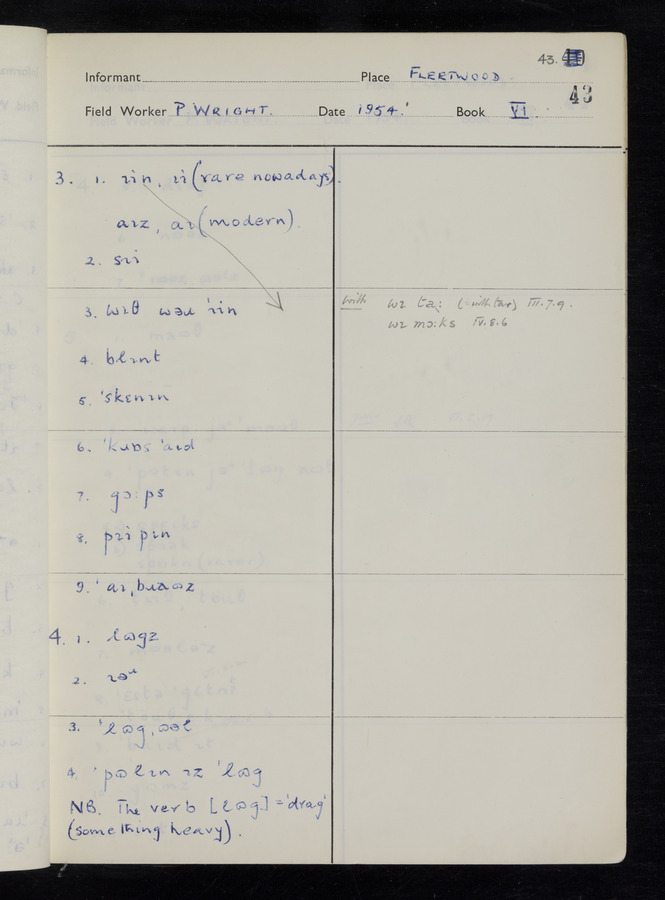 43.
Informant Place FLEETWOOD.
43
Field Worker P WRIGHT. Date 1954. Book VI
3. 1. ɪin, ɪi (rare nowadays).
aɪz, aɪ (modern).
2. sɪi
3. wɪθ wəu 'ɪin
with wɪ ta: (= with tar) III.7.9.
wɪ mɔ:ks IV.8.6
4. blɪnt
5. 'skɛnɪn
6. 'kɹɒs 'aɪd
7. gɔ:ps
8. pɪi pɪn
9. 'aɪ,bɹaʊz
4. 1. lʊgz
3. 'lʊg,ʊəl
4. 'pʊlɪn ɪz 'lʊg
NB. The verb [lʊg] = 'drag'
(something heavy).